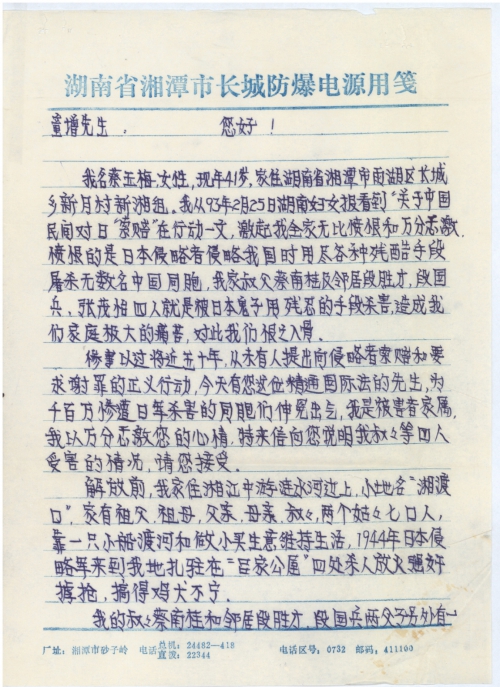 湖南省湘潭市长城防爆电源用笺
童增先生： 您好！
我名蔡玉梅，女性，现年41岁，家住湖南省湘潭市雨湖区长城
乡新月村新湘组。我从93年2月25日湖南妇女报看到“关于中国
民间对日“索赔”在行动一文，激起我全家无比愤恨和万分感激，
愤恨的是日本侵略者侵略我国时用尽各种残酷手段
屠杀无数名中国同胞，我家叔父蔡南桂及邻居段胜才，段国
兵、张茂相四人就是被日本鬼子用残忍的手段杀害，造成我
们家庭极大的痛苦，对此我们恨之入骨。
惨事以过将近五十年，从未有人提出向侵略者索赔和要
求谢罪的正义行动，今天有您这位精通国际法的先生，为
千百万惨遭日军杀害的同胞们伸冤出气，我是被害者家属，
我以万分感激您的心情，特来信向您说明我叔叔等四人
受害的情况，请您接受。
解放前，我家住湘江中游涟水河边上，小地名“湘渡
口”，家有祖父，祖母，父亲，母亲，叔叔，两个姑姑七口人，
靠一只小船渡河和做小买生意维持生活，1944年日本侵
略军来到我地扎驻在“百家公屋”四处杀人放火强奸
掳抢，搞得鸡犬不宁。
我的叔叔蔡南桂和邻居段胜才，段国兵两父子另外有一
厂址：湘潭市砂子岭 电话总机：24482—418 直拨：22344 电话区号：0732 邮码：411100